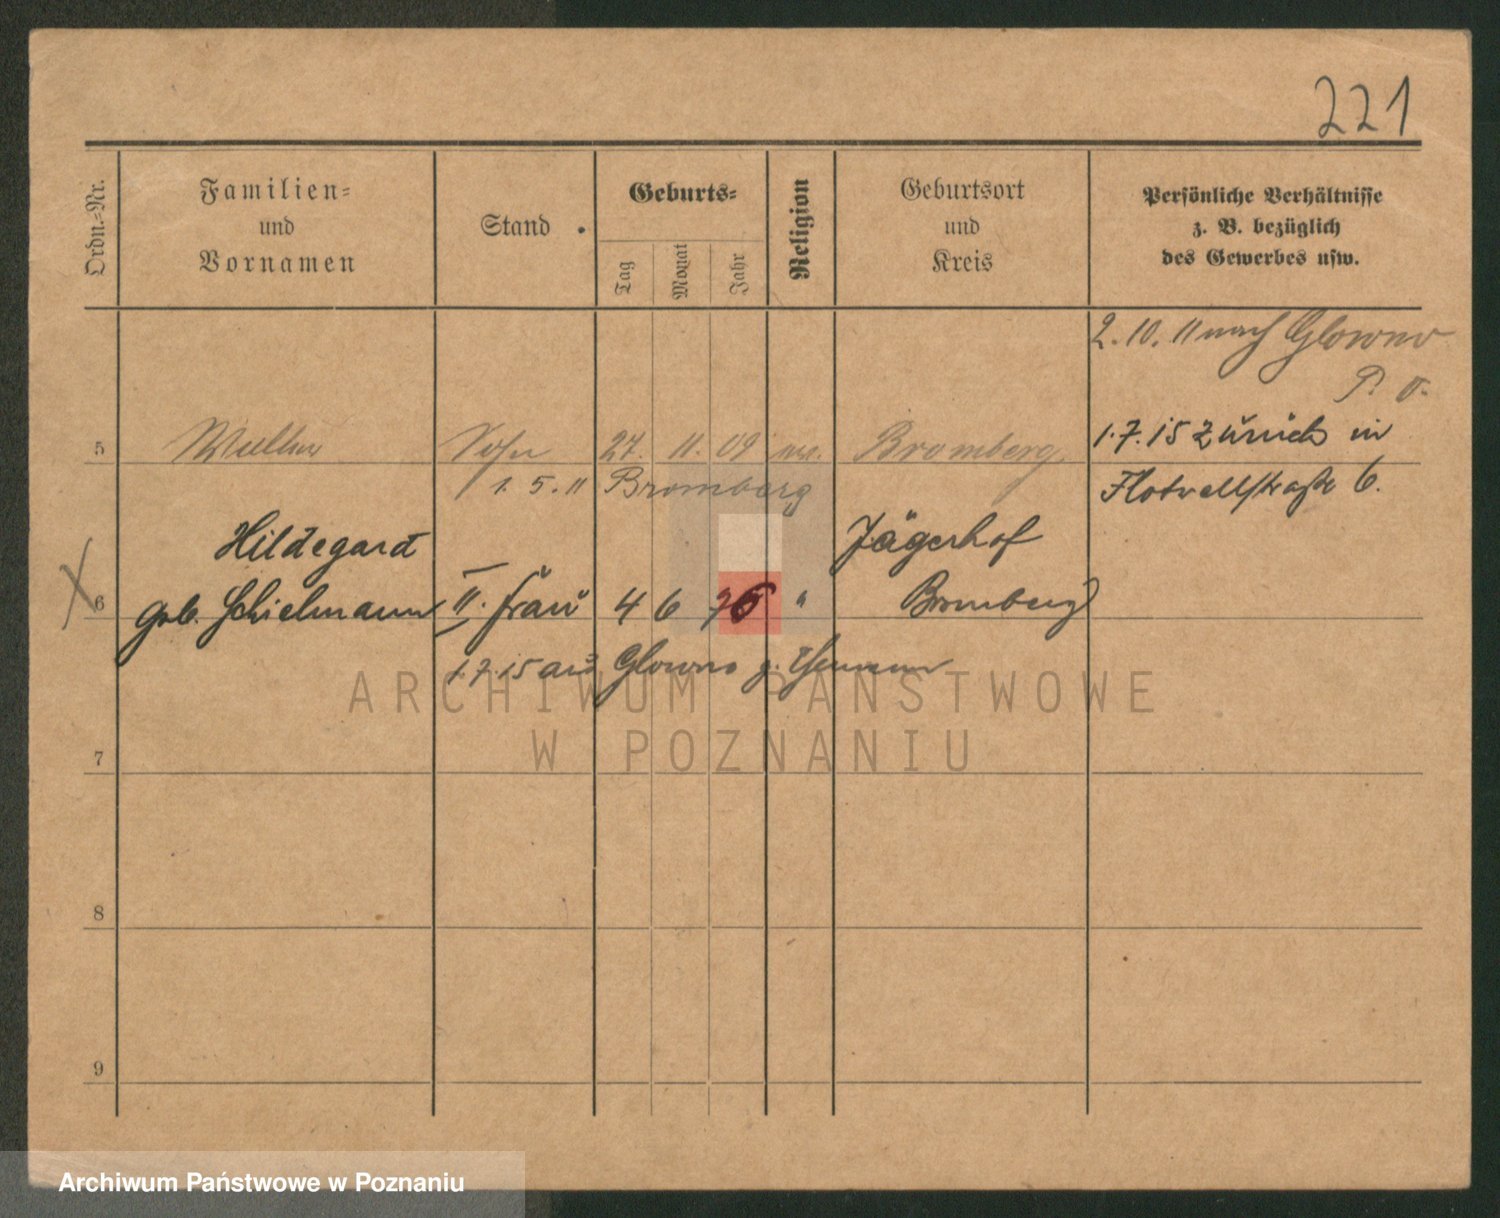 221
Ordn.=Nr.
Familien=
und
Vornamen
Stand
Geburts=
Tag
Monat
Jahr
Religion
Geburtsort
und
Kreis
Persönliche Verhältnisse
z. B. bezüglich
des Gewerbes usw.
2.10.11 nach Glowno
P. O.
5 Sohn 27. 11. 09 Bromberg
1.7.15 zurück in
1.5.11 Bromberg
Flotwellstraße 6.
Hildegard Jägerhof
6 geb. Schielmann II. Frau 4 6 76 " Bromberg
1.7.15 aus Glowno
7
8
9
ARCHIWUM PAŃSTWOWE
W POZNANIU
Archiwum Państwowe w Poznaniu